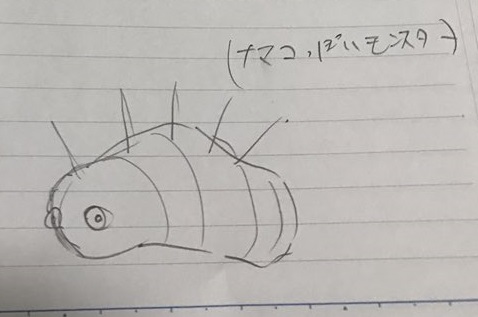 (ナマコ,ぽいモンスター)